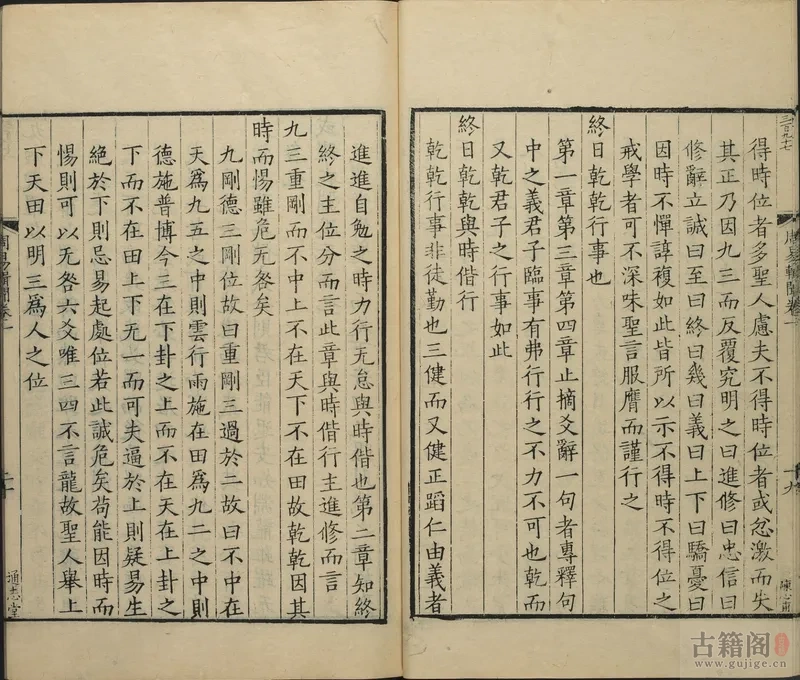 三百九十七
得時位者多聖人慮夫不得時位者或忿激而失
其正乃因九三而反覆究明之曰進修曰忠信曰
修辭立誠曰至曰終曰幾曰義曰上下曰驕憂曰
因時不憚諄複如此皆所以示不得時不得位之
戒學者可不深味聖言服膺而謹行之
終日乾乾行事也
第一章第三章第四章止摘爻辭一句者專釋句
中之義君子臨事有弗行行之不力不可也乾而
又乾君子之行事如此
終日乾乾與時偕行
乾乾行事非徒勤也三健而又健正蹈仁由義者
進進自勉之時力行无怠與時偕也第二章知終
終之主位分而言此章與時偕行主進修而言
九三重剛而不中上不在天下不在田故乾乾因其
時而惕雖危无咎矣
九剛德三剛位故曰重剛三過於二故曰不中在
天爲九五之中則雲行雨施在田爲九二之中則
德施普博今三在下卦之上而不在天在上卦之
下而不在田上下无一而可夫逼於上則疑易生
絶於下則忌易起處位若此誠危矣苟能因時而
惕則可以无咎六爻唯三四不言龍故聖人舉上
下天田以明三爲人之位
通志堂
古籍阁
www.gujige.cn